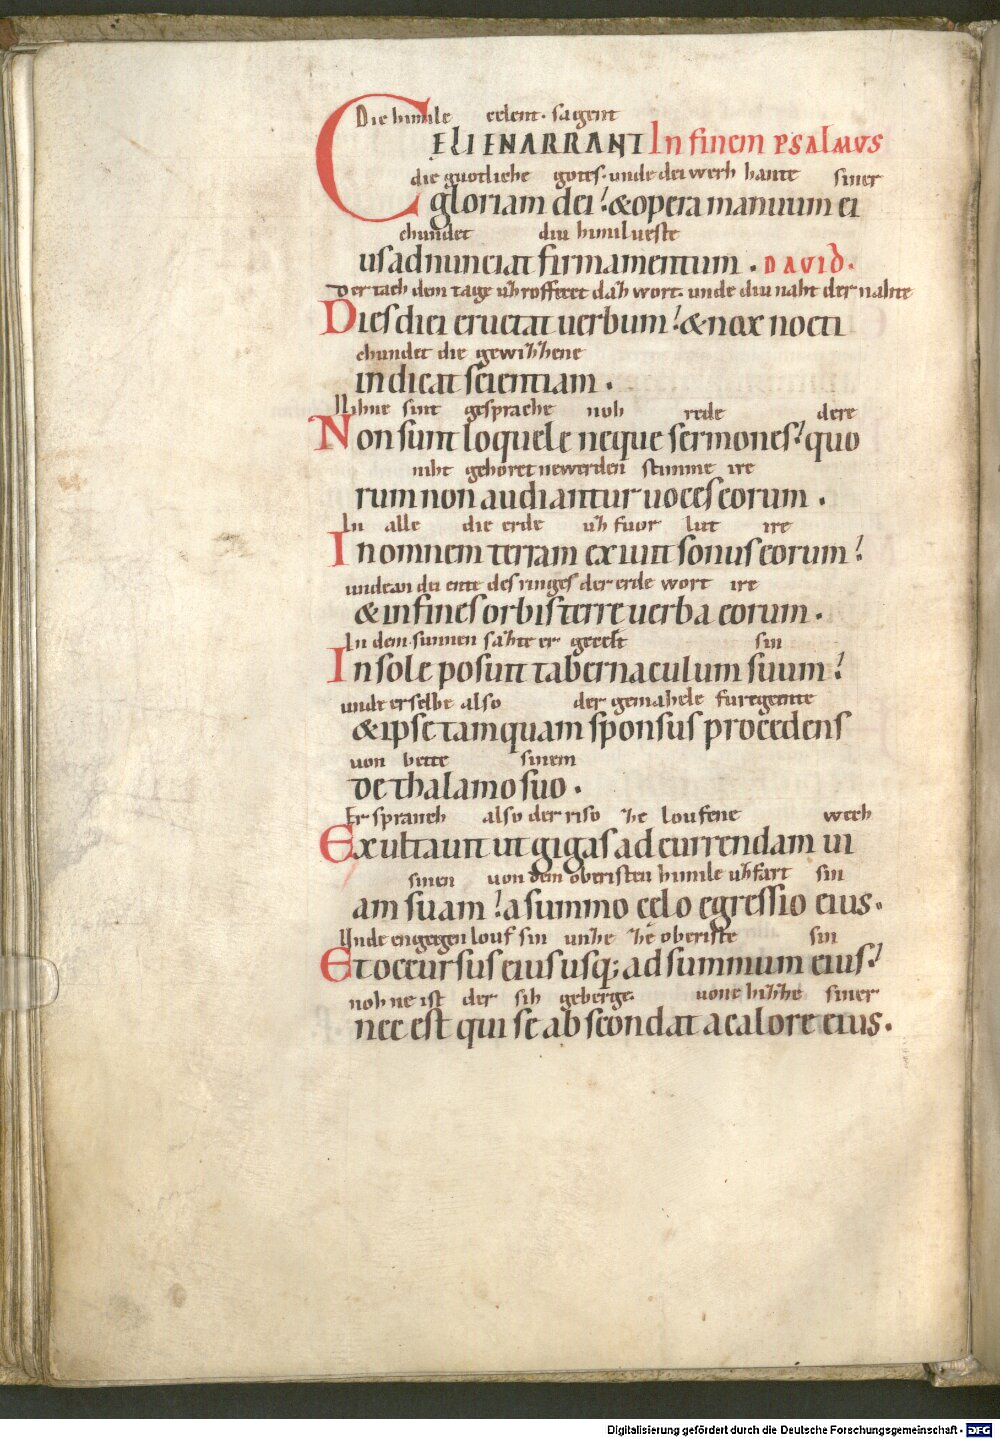 Die himile celent · sagent
CELI ENARRANT In finem PSALMVS
die guotliche gotes · unde dei werh hante siner
gloriam dei ? & opera manuum ei
chundet diu himilueste
us adnunciat firmamentum . DAVID .
Der tach dem tage uhroffecet dah wort · unde diu naht der nahte
Dies diei eructat uerbum ? & nox nocti
chundet die gewihhene
indicat scientiam .
Nihne sint gesprache noh rede dere
Non sunt loquele neque sermones ? quo
niht gehoret newerden stimme ire
rum non audiantur uoces eorum .
In alle die erde uh fuor lut ire
In omnem terram exiuit sonus eorum ?
unde an dei ente des ringes der erde wort ire
& in fines orbis terre uerba eorum .
In dem sunnen sahte er gecelt sin
In sole posuit tabernaculum suum ?
unde er selbe also der gemahele furegente
& ipse tamquam sponsus procedens
uon bette sinem
de thalamo suo .
Er spranch also der riso he loufene wech
Exultauit ut gigas ad currendam ui
sinen uon dem oberisten himile uhfart sin
am suam ? a summo celo egressio eius .
Unde engegen louf sin unhe he oberiste sin
Et occursus eius usq; ad summum eius ?
noh ne ist der sih geberge · uone hihhe siner
nec est qui se abscondat a calore eius .
Digitalisierung gefördert durch die Deutsche Forschungsgemeinschaft - DFG